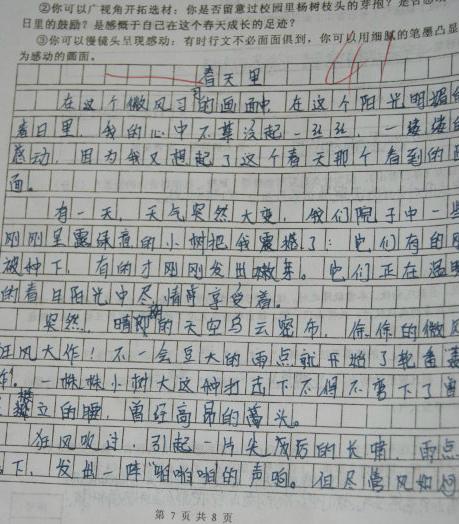 ②你可以广视角开拓选材：你是否留意过校园里杨树枝头的芽孢？是否感
日里的鼓励？是感慨于自己在这个春天成长的足迹？
③你可以慢镜头呈现感动：有时行文不必面面俱到，你可以用细腻的笔墨凸显
为感动的画面。
春天里
在这个微风习习的画面中，在这个阳光明媚的
春日里，我的心中不禁泛起一丝丝，一缕缕的
感动，因为我又想起了这个春天那个看到的画
面。
有一天，天气突然大变，我们院子中一些
刚刚呈露绿意的小树把我震撼了：它们有的刚
被种下，有的才刚刚发出嫩芽。它们正在温暖
的春日阳光中尽情享受着。
突然，晴朗的天空乌云密布，徐徐的微风
狂风大作！不一会豆大的雨点就开始了轮番轰
炸。一株株小树大这种打击下不得不弯下了曾
挺立的腰，曾经高昂的头。
狂风吹过，引起一片尖厉后的长啸，雨点
下，发出一阵“啪啪啪”的声响。但尽管风如何
第7页共8页